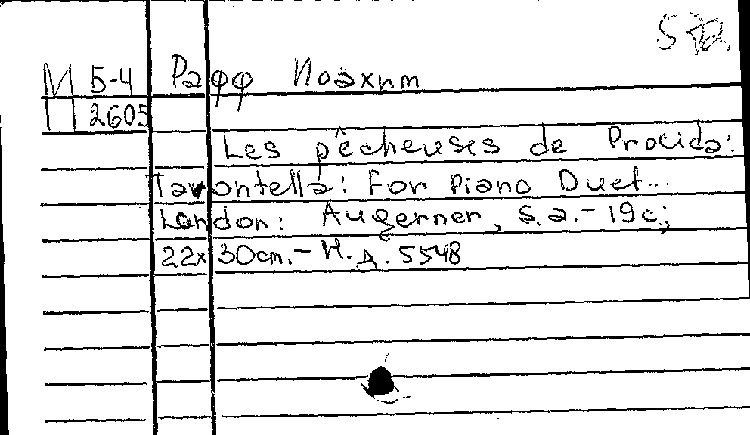 М Б-4 Рафф Иоахим
П 2605
Les pêcheuses de Procida:
Tarantella: For Piano Duet...
London: Augerner, s.a. - 19c;
22x30cm. - Н.д. 5548